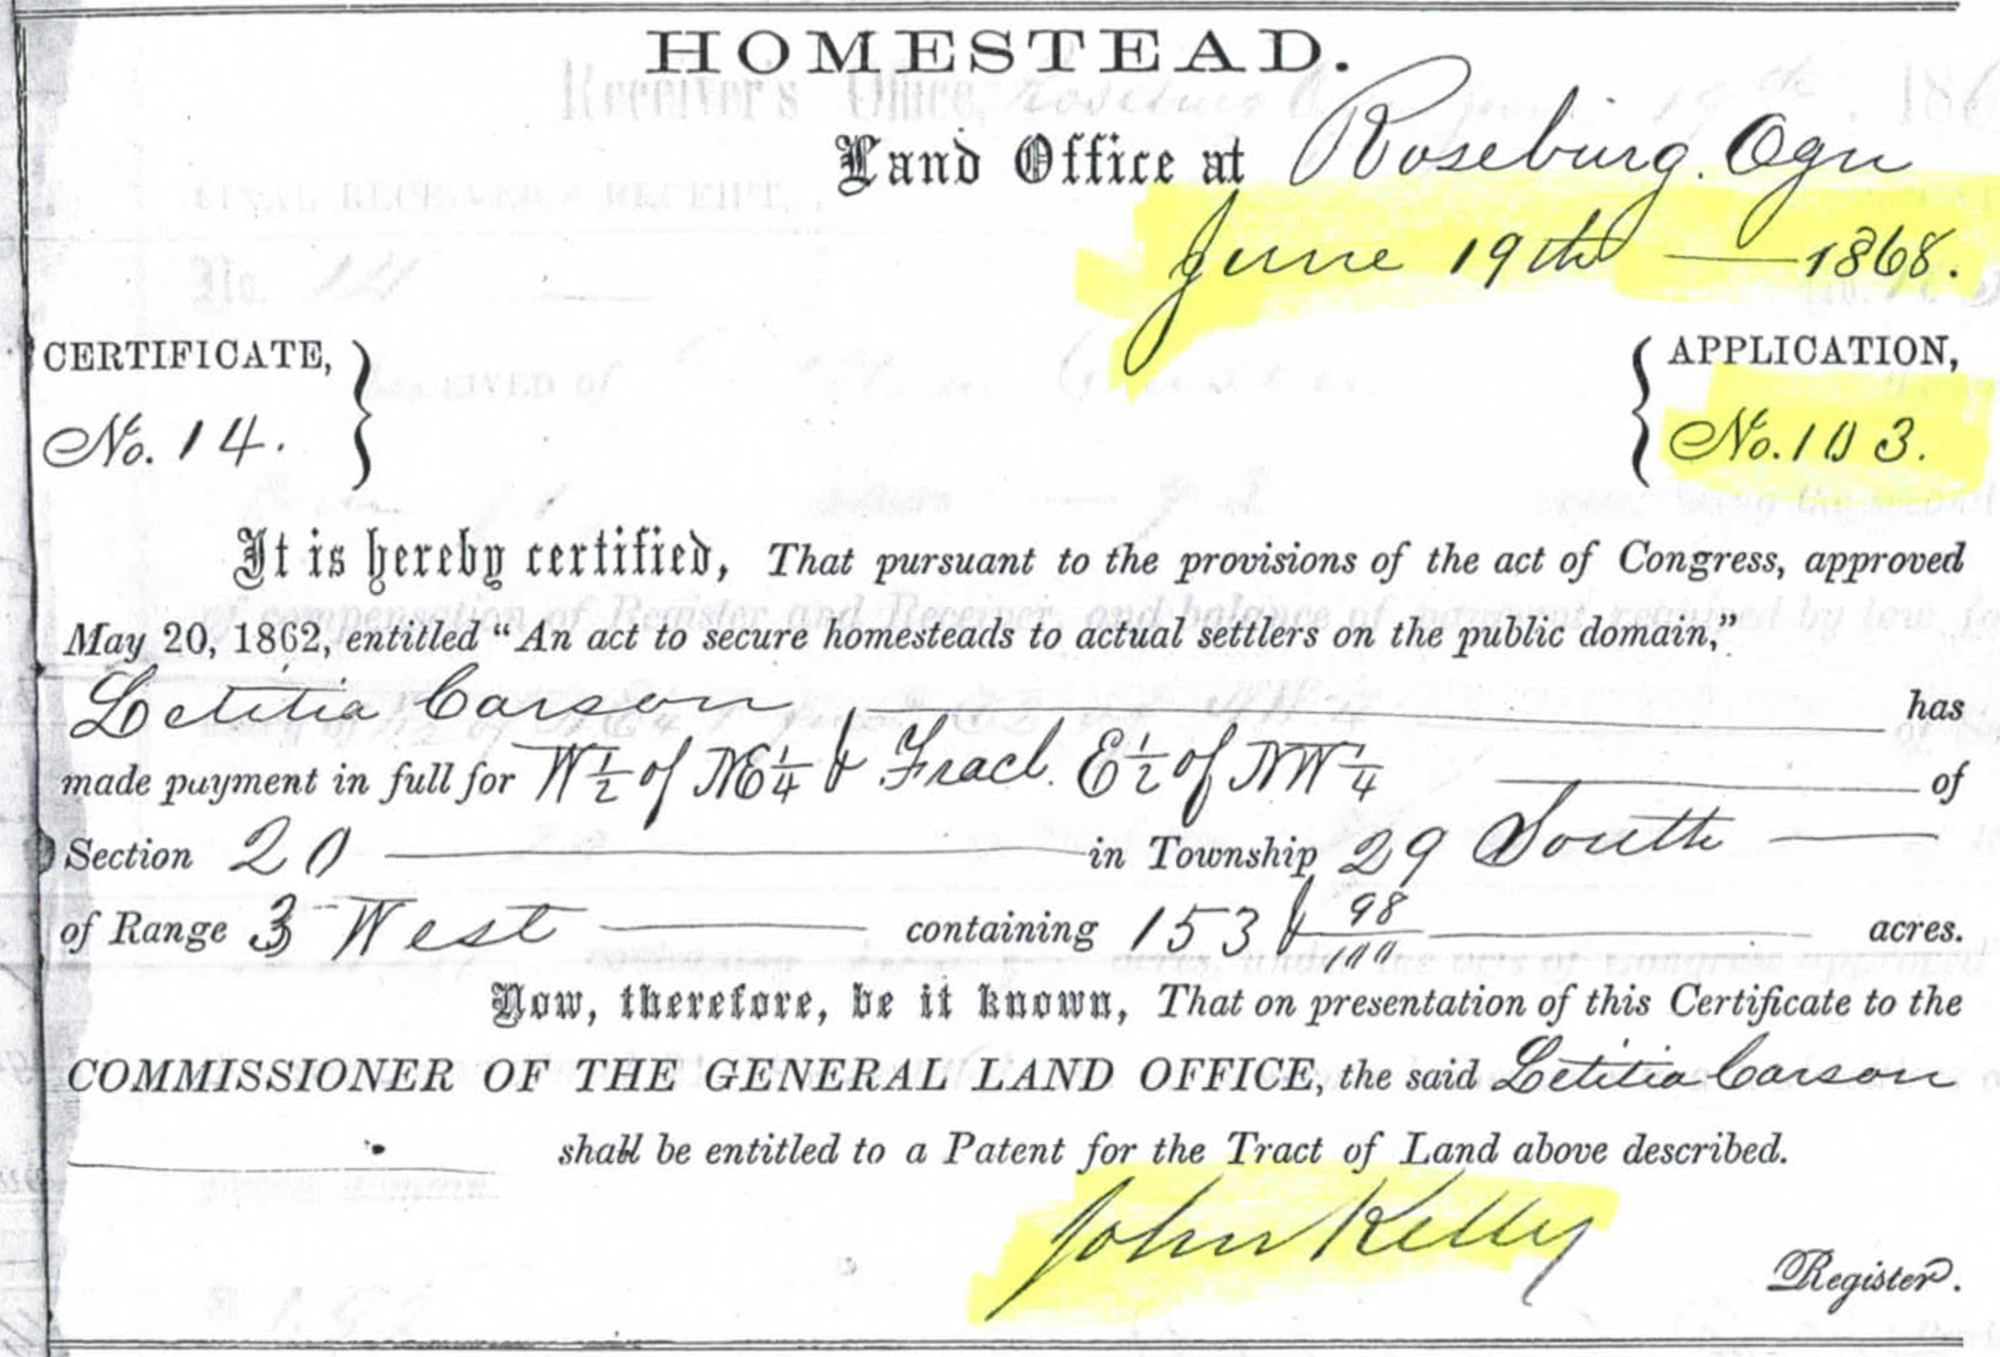 HOMESTEAD.
Land Office at Roseburg. Ogn
June 19th — 1868.
CERTIFICATE, } { APPLICATION,
No. 14. No. 103.
It is hereby certified, That pursuant to the provisions of the act of Congress, approved
May 20, 1862, entitled “An act to secure homesteads to actual settlers on the public domain,”
Letitia Carson has
made payment in full for W 1/2 of NE 1/4 & Fracl. E 1/2 of NW 1/4 of
Section 20 in Township 29 South
of Range 3 West containing 153 & 98/100 acres.
Now, therefore, be it known, That on presentation of this Certificate to the
COMMISSIONER OF THE GENERAL LAND OFFICE, the said Letitia Carson
shall be entitled to a Patent for the Tract of Land above described.
John Kelly
Register.